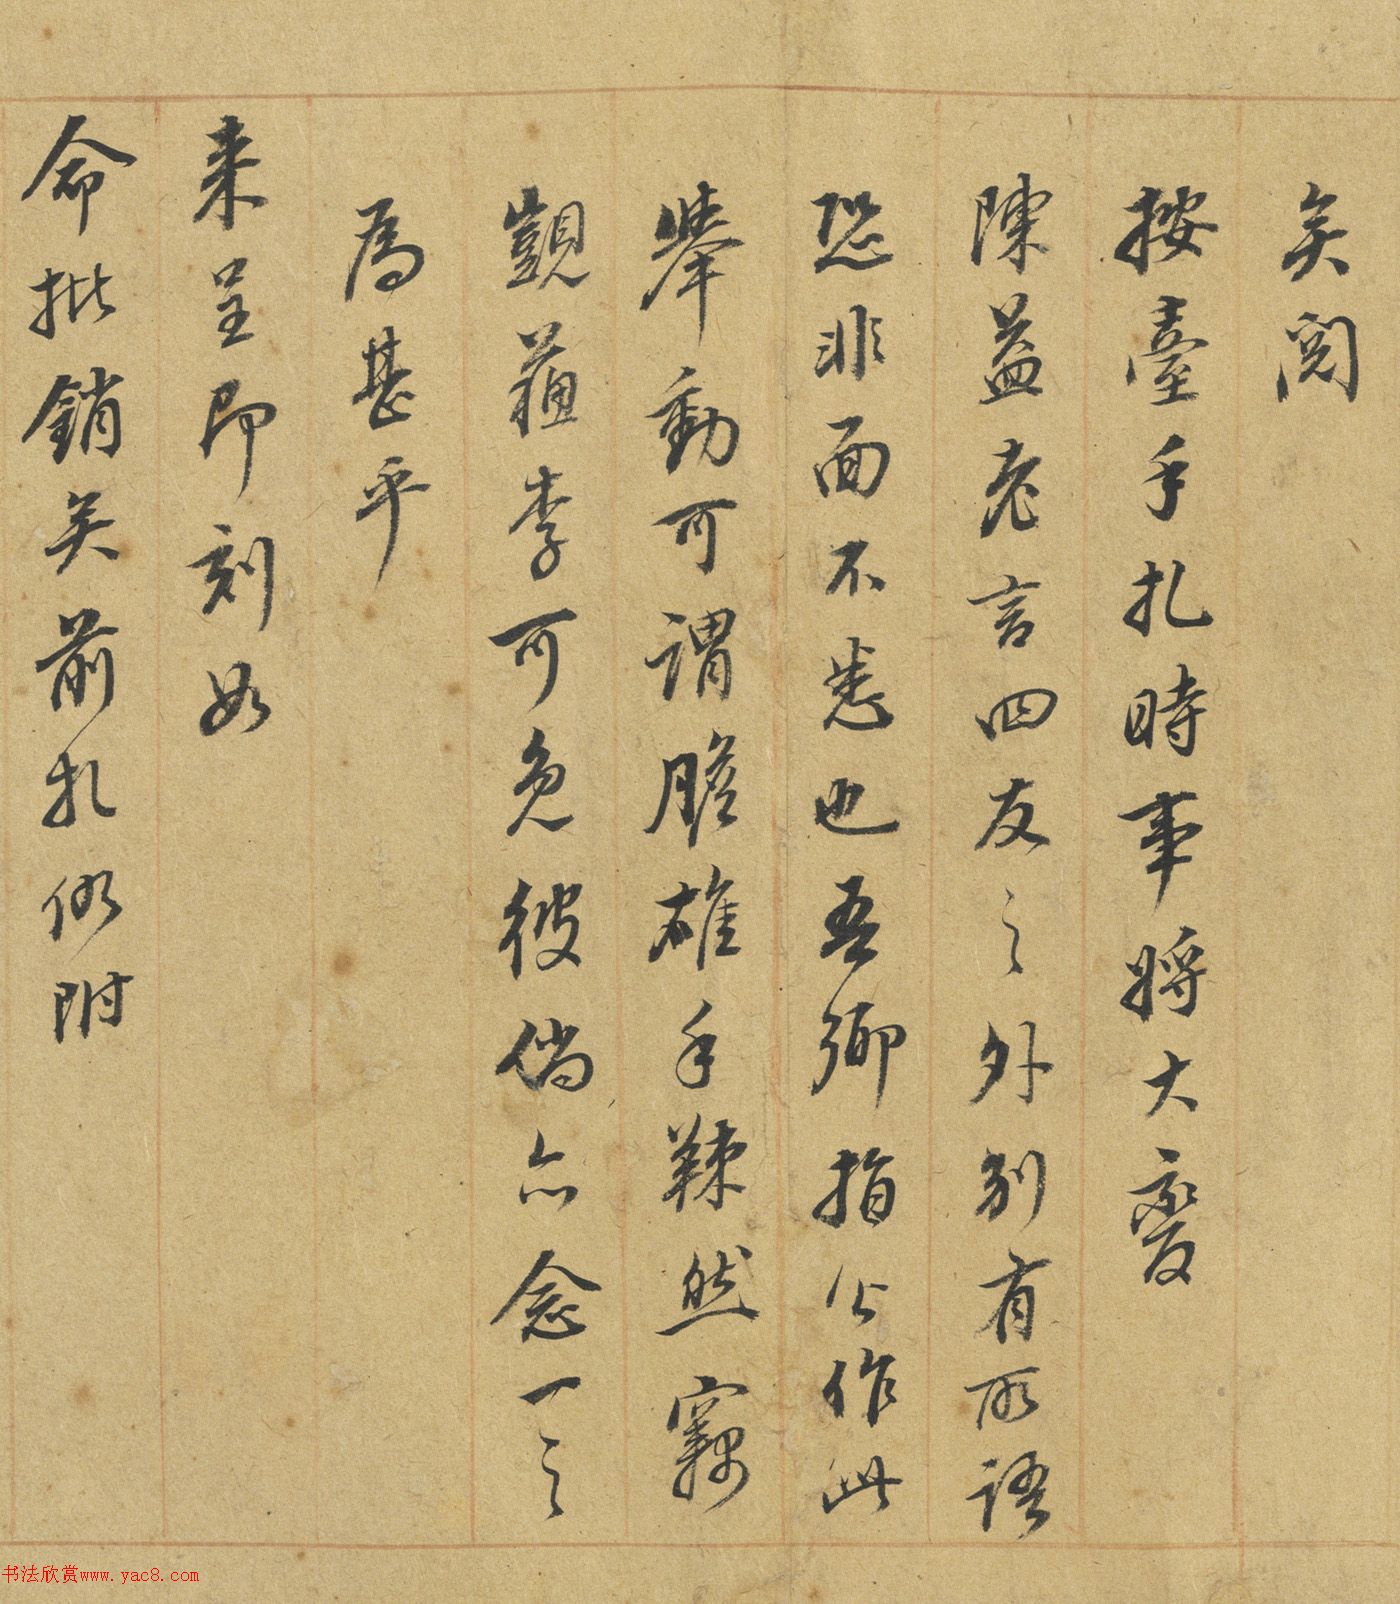 矣閱
按臺手扎時事將大變
陳益老言四友之外別有所語
恐非面不悉也吾鄉指公作此
舉動可謂膽雄手辣然竊
覬蘓李可免彼倘亦念一之
為甚乎
来呈即刻如
命批銷矣前扎仍附
书法欣赏www.yac8.com